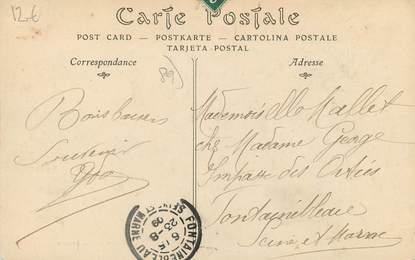 12€
Carte Postale
POST CARD — POSTKARTE — CARTOLINA POSTALE
TARJETA POSTAL
Correspondance
Adresse
89)
Bons baisers
Souvenir
Mademoiselle Mallet
chez Madame George
Impasse des
Fontainebleau
Seine et Marne
FONTAINEBLEAU
SEINE ET MARNE
23-8
09